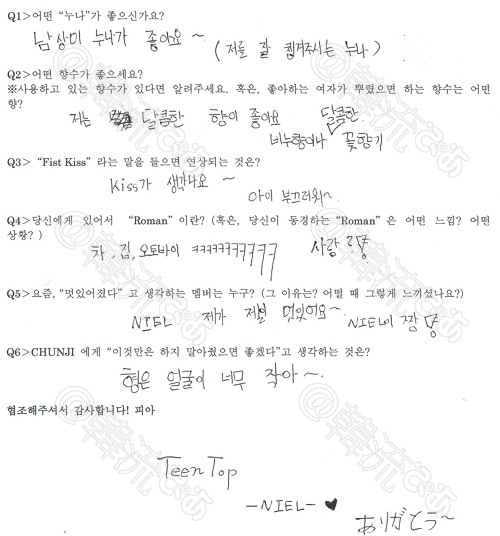 Q1>어떤 “누나”가 좋으신가요?
남상미 누나가 좋아요~ (저를 잘 챙겨주시는 누나)
Q2>어떤 향수가 좋으세요?
※사용하고 있는 향수가 있다면 알려주세요. 혹은, 좋아하는 여자가 뿌렸으면 하는 향수는 어떤
향?
저는 달콤한 향이 좋아요 달콤한
비누향이나 꽃향기
Q3> “Fist Kiss” 라는 말을 들으면 연상되는 것은?
Kiss가 생각나요 ~
아이 부끄러워~
Q4>당신에게 있어서 “Roman” 이란? (혹은, 당신이 동경하는 “Roman” 은 어떤 느낌? 어떤
상황? )
차, 집, 오토바이 ㅋㅋㅋㅋㅋㅋㅋㅋㅋㅋ 사랑?
Q5>요즘, “멋있어졌다” 고 생각하는 멤버는 누구? (그 이유는? 어떨 때 그렇게 느끼셨나요?)
NIEL 제가 제일 멋있어요~ NIEL이 짱
Q6>CHUNJI 에게 “이것만은 하지 말아줬으면 좋겠다”고 생각하는 것은?
형은 얼굴이 너무 작아~.
협조해주셔서 감사합니다! 피아
Teen Top
-NIEL- ♥
ありがとう~
@韓流ぴあ